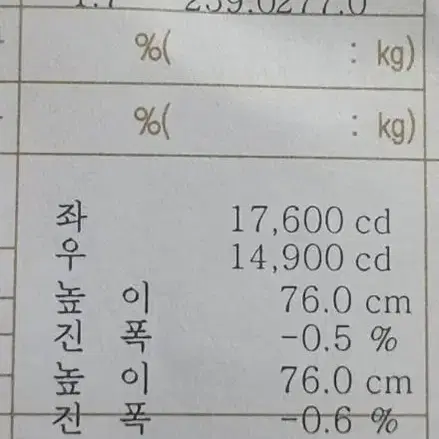 %( : kg)
%( : kg)
좌 17,600 cd
우 14,900 cd
높 이 76.0 cm
진 폭 -0.5 %
높 이 76.0 cm
진 폭 -0.6 %